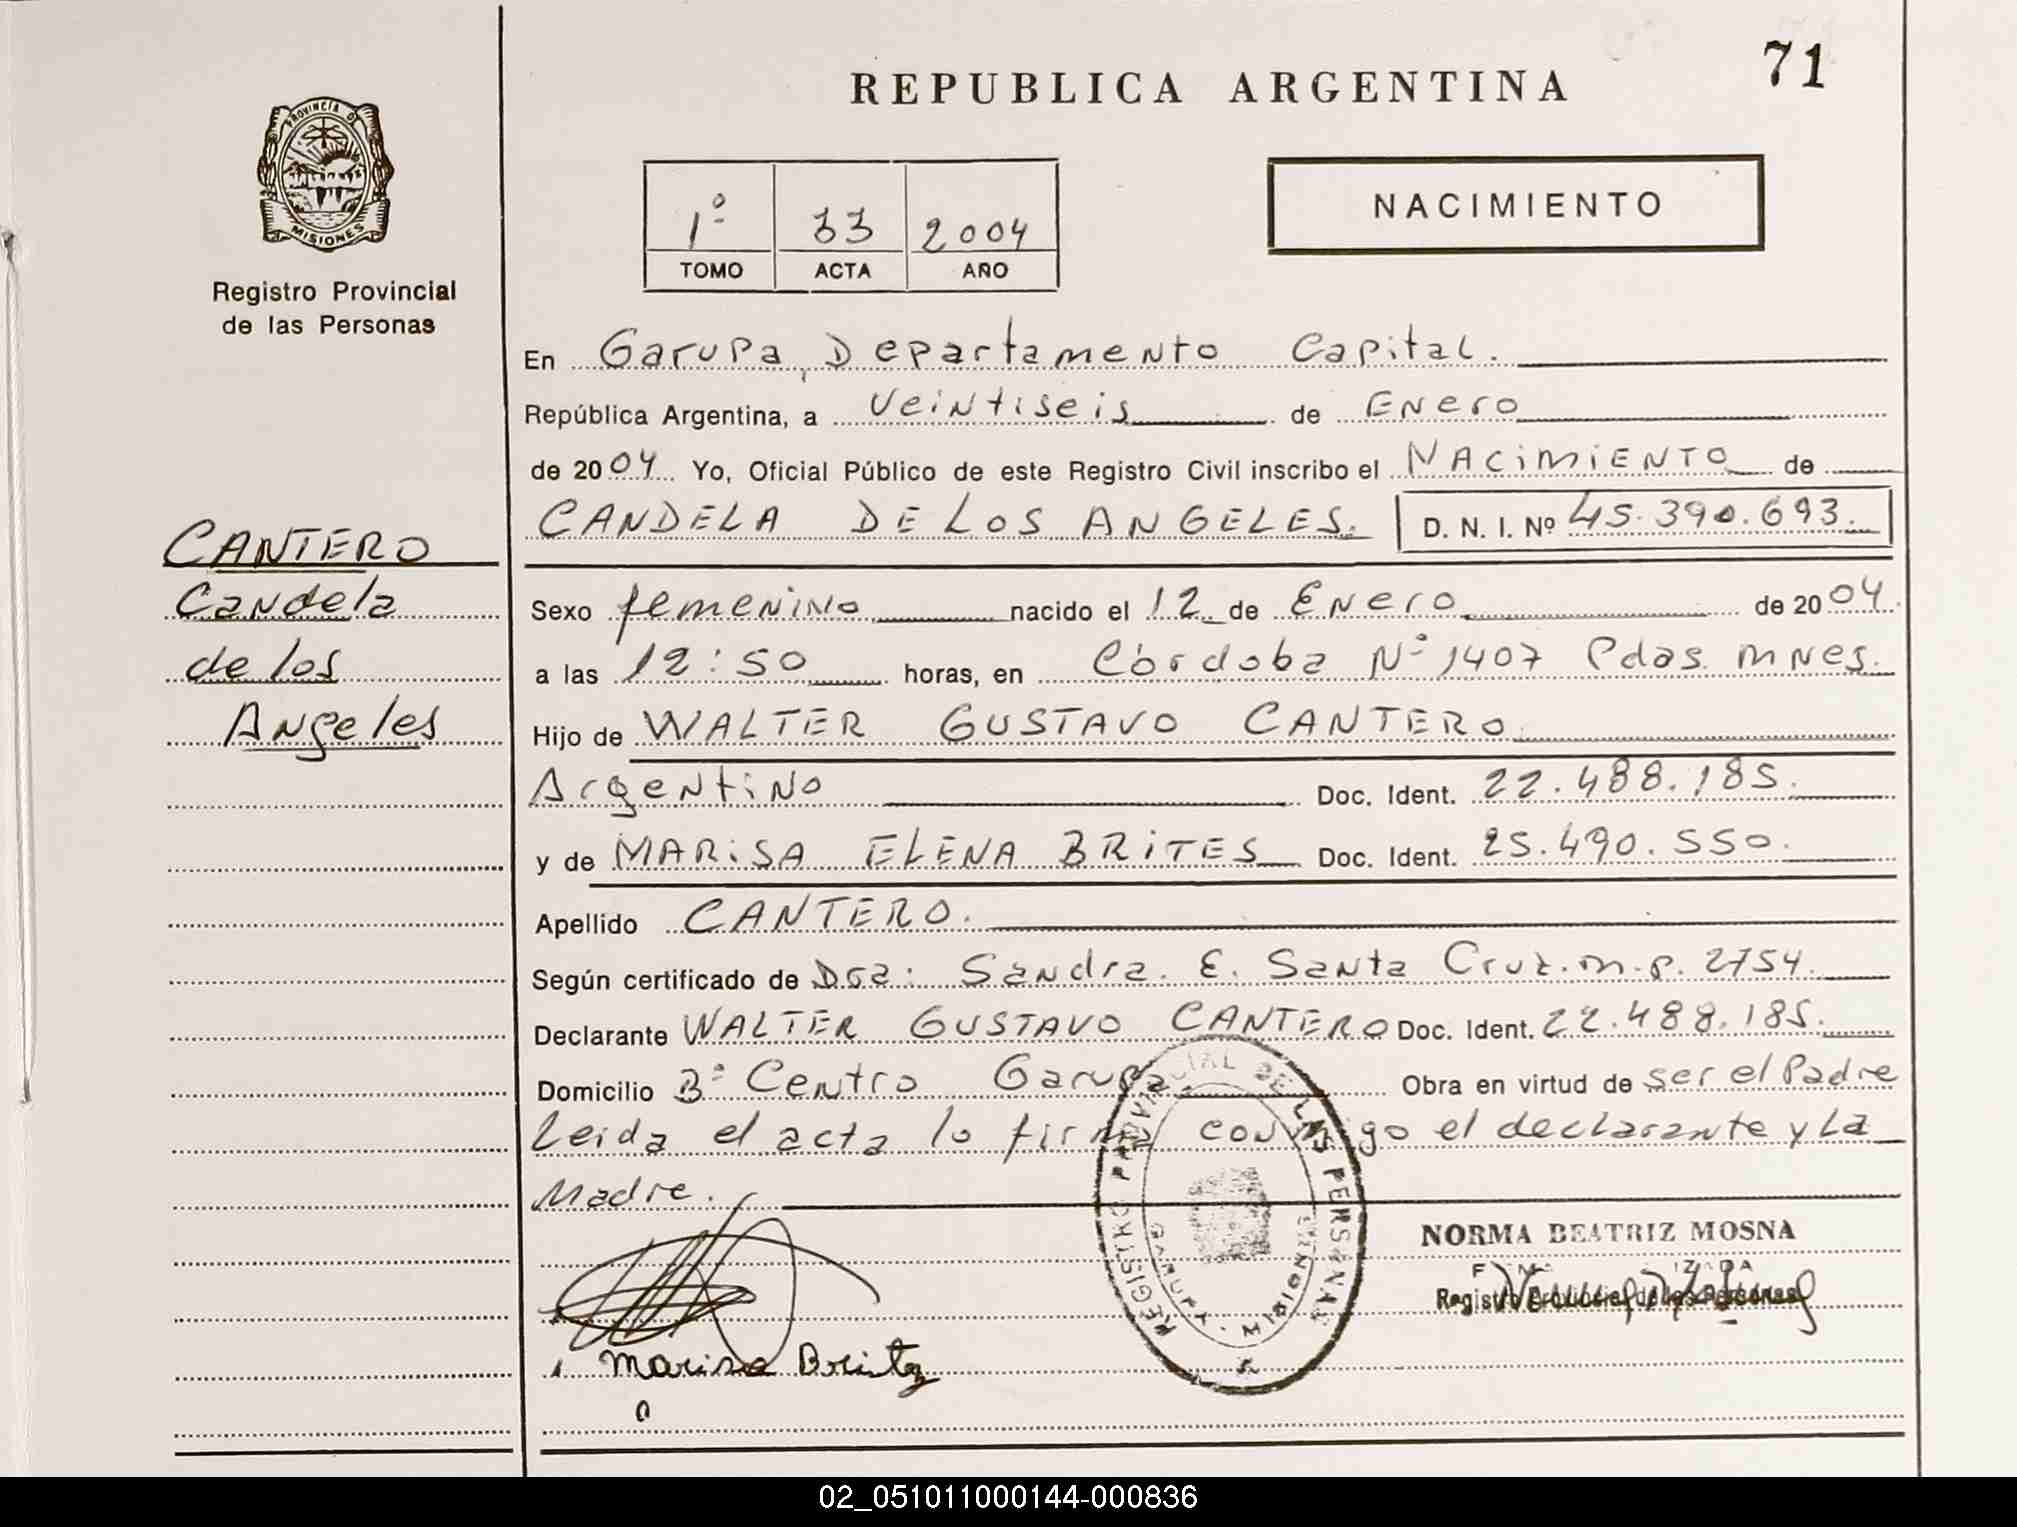 71
REPUBLICA ARGENTINA
PROVINCIA DE
MISIONES
1º 33 2004
TOMO ACTA AÑO
NACIMIENTO
Registro Provincial
de las Personas
En Garupa, Departamento Capital.
República Argentina, a Veintiseis de Enero
de 2004 Yo, Oficial Público de este Registro Civil inscribo el NACIMIENTO de
CANDELA DE LOS ANGELES. D. N. I. Nº 45.390.693.
CANTERO
Candela
de los
Angeles
Sexo femenino nacido el 12 de Enero de 2004
a las 12:50 horas, en Córdoba Nº 1407 Pdas. Mnes.
Hijo de WALTER GUSTAVO CANTERO
Argentino Doc. Ident. 22.488.185.
y de MARISA ELENA BRITES Doc. Ident. 25.490.550.
Apellido CANTERO.
Según certificado de Dra: Sandra. E. Santa Cruz. m.p. 2754.
Declarante WALTER GUSTAVO CANTERO Doc. Ident. 22.488.185.
Domicilio Bº Centro Garupa. Obra en virtud de ser el Padre
Leida el acta lo firma conmigo el declarante y la
Madre.
REGISTRO PROVINCIAL DE LAS PERSONAS
GARUPA - MISIONES
NORMA BEATRIZ MOSNA
Registro Provincial de las Personas
Marisa Britez
02_051011000144-000836